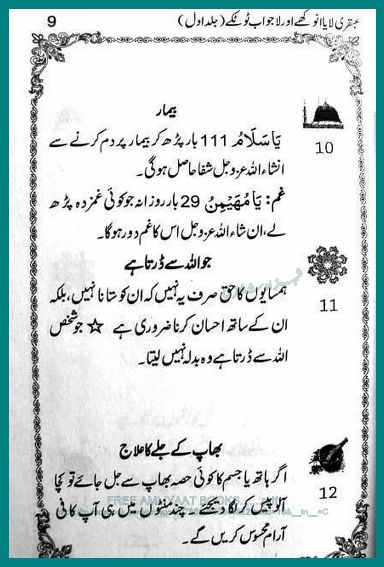 عبقری لایا انوکھے اور لاجواب ٹوٹکے (جلد اول) 9
بیمار
یَا سَلَامُ 111 بار پڑھ کر بیمار پر دم کرنے سے
انشاء اللہ عزوجل شفا حاصل ہوگی۔
10
غم: یَا مُهَيْمِنُ 29 بار روزانہ جو کوئی غمزدہ پڑھ
لے، ان شاء اللہ عزوجل اس کا غم دور ہوگا۔
جو اللہ سے ڈرتا ہے
ہمسایوں کا حق صرف یہ نہیں کہ ان کو ستانا نہیں، بلکہ
11
ان کے ساتھ احسان کرنا ضروری ہے ☆ جو شخص
اللہ سے ڈرتا ہے وہ بدلہ نہیں لیتا۔
بھاپ کے جلے کا علاج
اگر ہاتھ یا جسم کا کوئی حصہ بھاپ سے جل جائے تو کچا
12
آلو پیس کر لگا دیجئے۔ چند منٹوں میں ہی آپ کافی
آرام محسوس کریں گے۔
FREE AMLIYAAT BOOKS